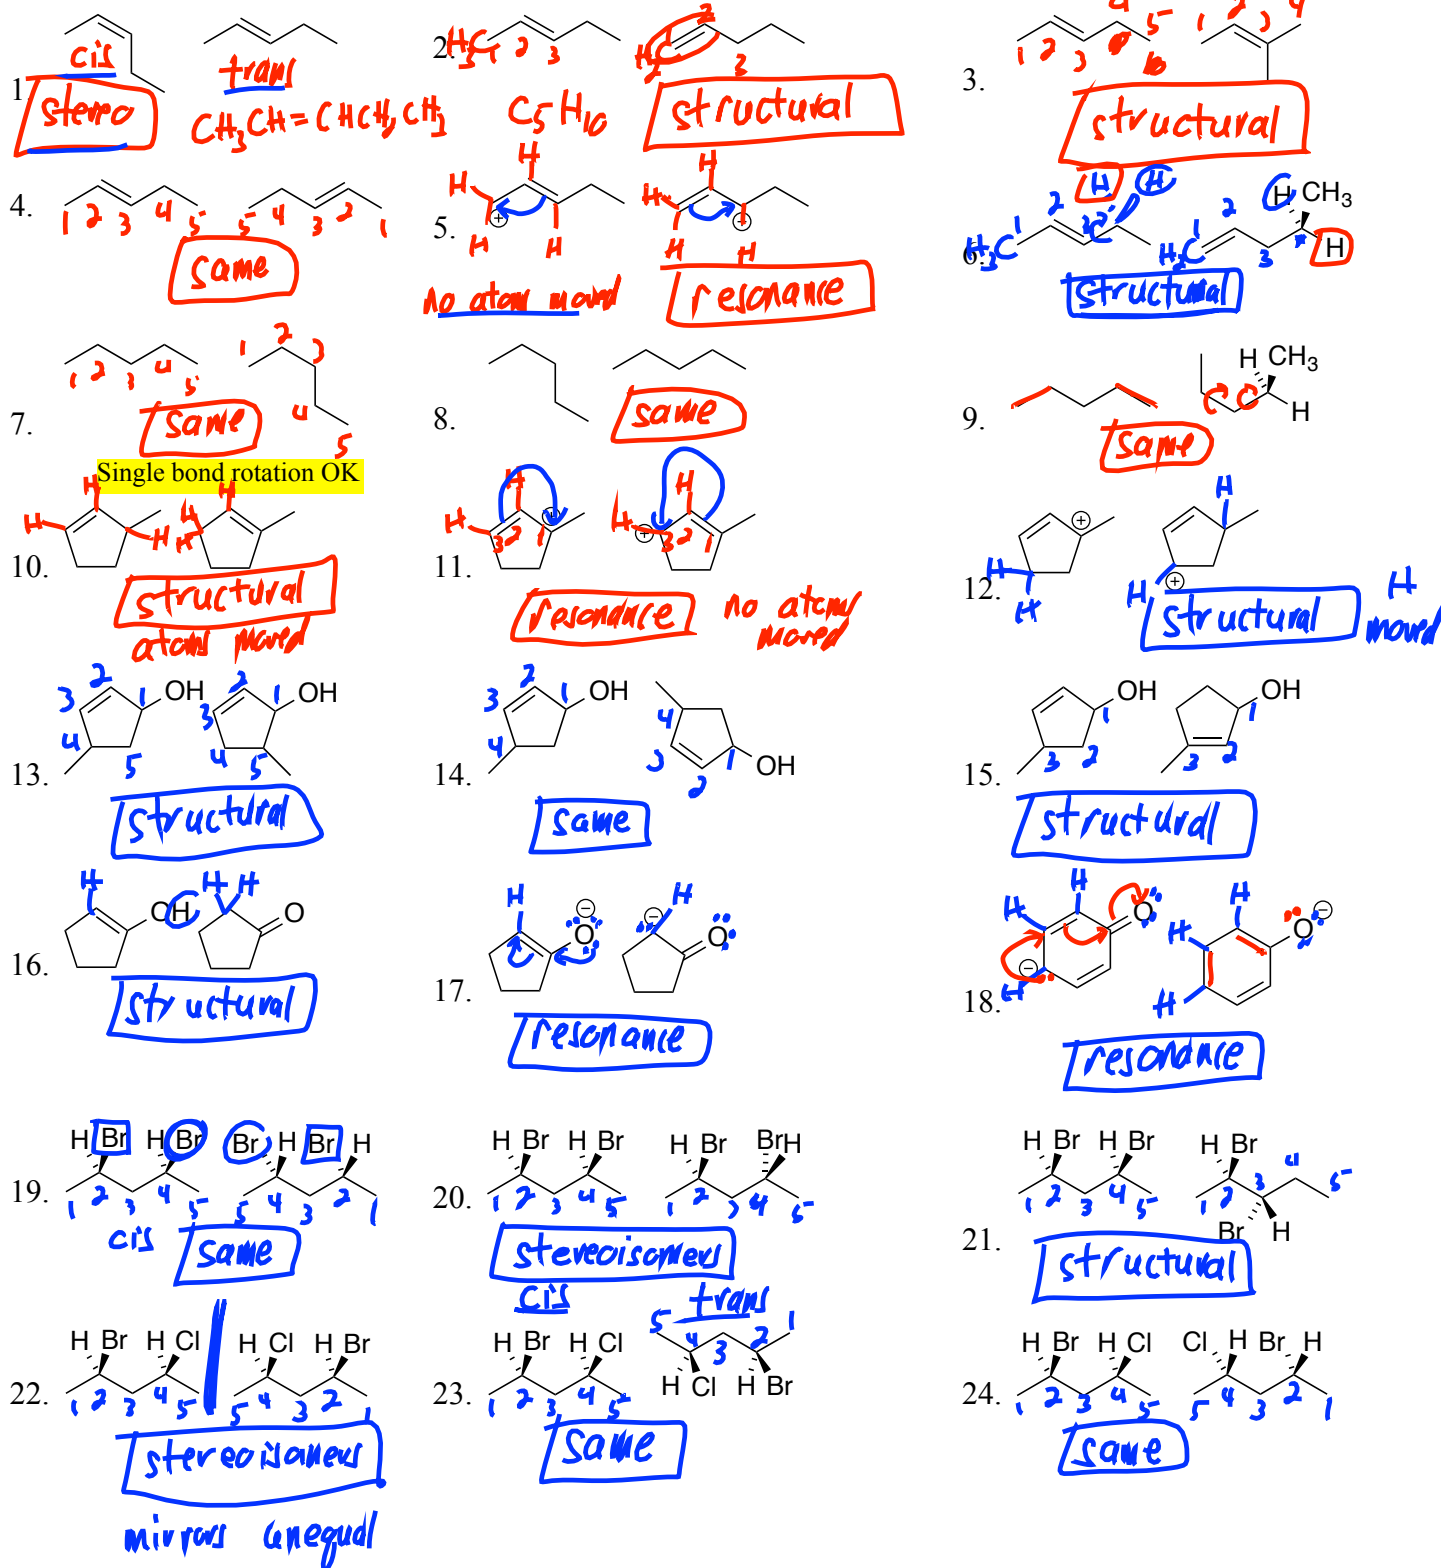 1. cis trans
stereo CH3CH=CHCH2CH3
2. H3C 1 2 3 H2C 1 2 3
C5H10 structural
3. 1 2 3 4 5 1 2 3 4
structural
4. 1 2 3 4 5 5 4 3 2 1
same
5. H H H H ⊕ H H H H ⊕
no atoms moved resonance
6. H3C 1 2 3 C H H H2C 1 2 3 4 H CH3 H
structural
7. 1 2 3 4 5 1 2 3 4 5
same
8. same
9. H CH3 H
same
Single bond rotation OK
10. H H H H H H
structural
atoms moved
11. H H 3 2 1 ⊕ H H ⊕ 3 2 1
resonance no atoms moved
12. ⊕ H H H H ⊕
structural H moved
13. 3 2 1 OH 4 5 2 1 OH 3 4 5
structural
14. 3 2 1 OH 4 4 3 2 1 OH
same
15. OH 1 2 3 OH 1 2 3
structural
16. H OH H H O
structural
17. H O ⊖ ⊖ H O
resonance
18. H H H ⊖ O H H H O ⊖
resonance
19. H Br H Br Br H Br H
1 2 3 4 5 5 4 3 2 1
cis same
20. H Br H Br H Br Br H
1 2 3 4 5 1 2 3 4 5
stereoisomers
cis trans
21. H Br H Br H Br
1 2 3 4 5 1 2 3 4 5
Br H
structural
22. H Br H Cl H Cl H Br
1 2 3 4 5 5 4 3 2 1
stereoisomers
mirrors unequal
23. H Br H Cl 5 4 3 2 1
1 2 3 4 5 H Cl H Br
same
24. H Br H Cl Cl H Br H
1 2 3 4 5 5 4 3 2 1
same